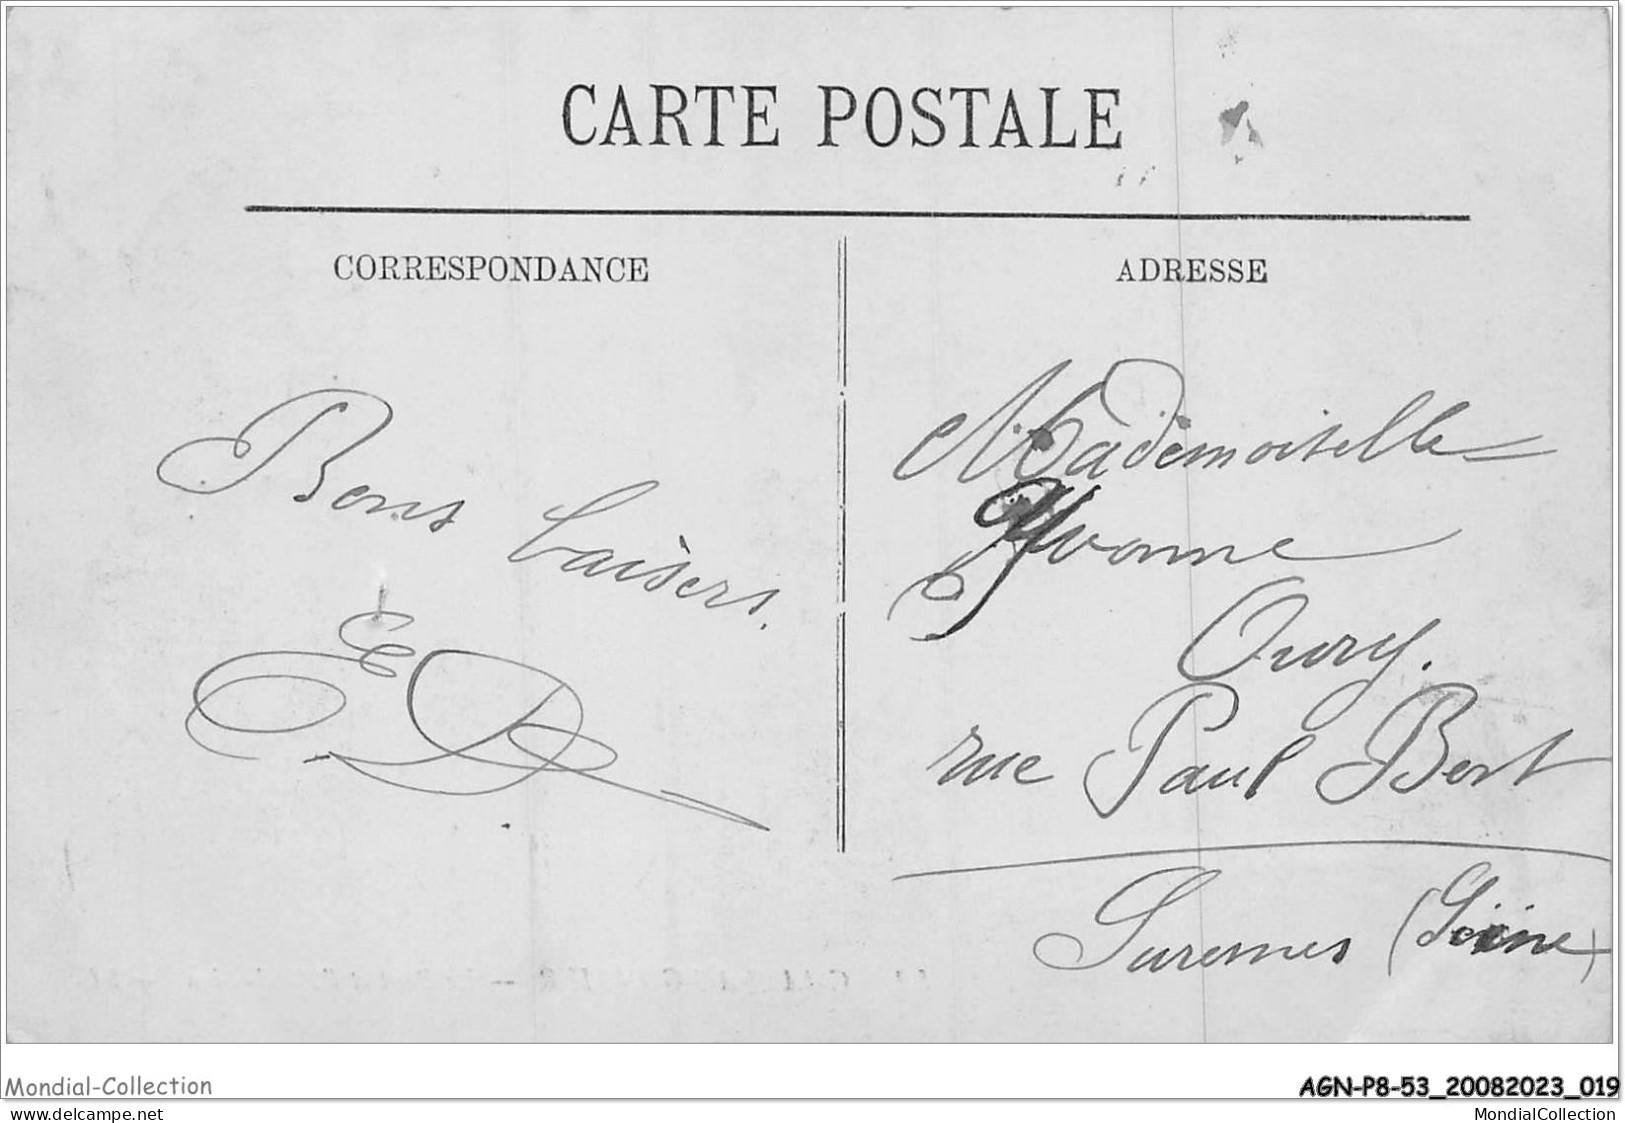 CARTE POSTALE
CORRESPONDANCE
ADRESSE
Bons baisers.
ED
Mademoiselle
Yvonne
Oury.
rue Paul Bert
Suresnes (Seine)
Mondial-Collection
AGN-P8-53_20082023_019
www.delcampe.net
MondialCollection